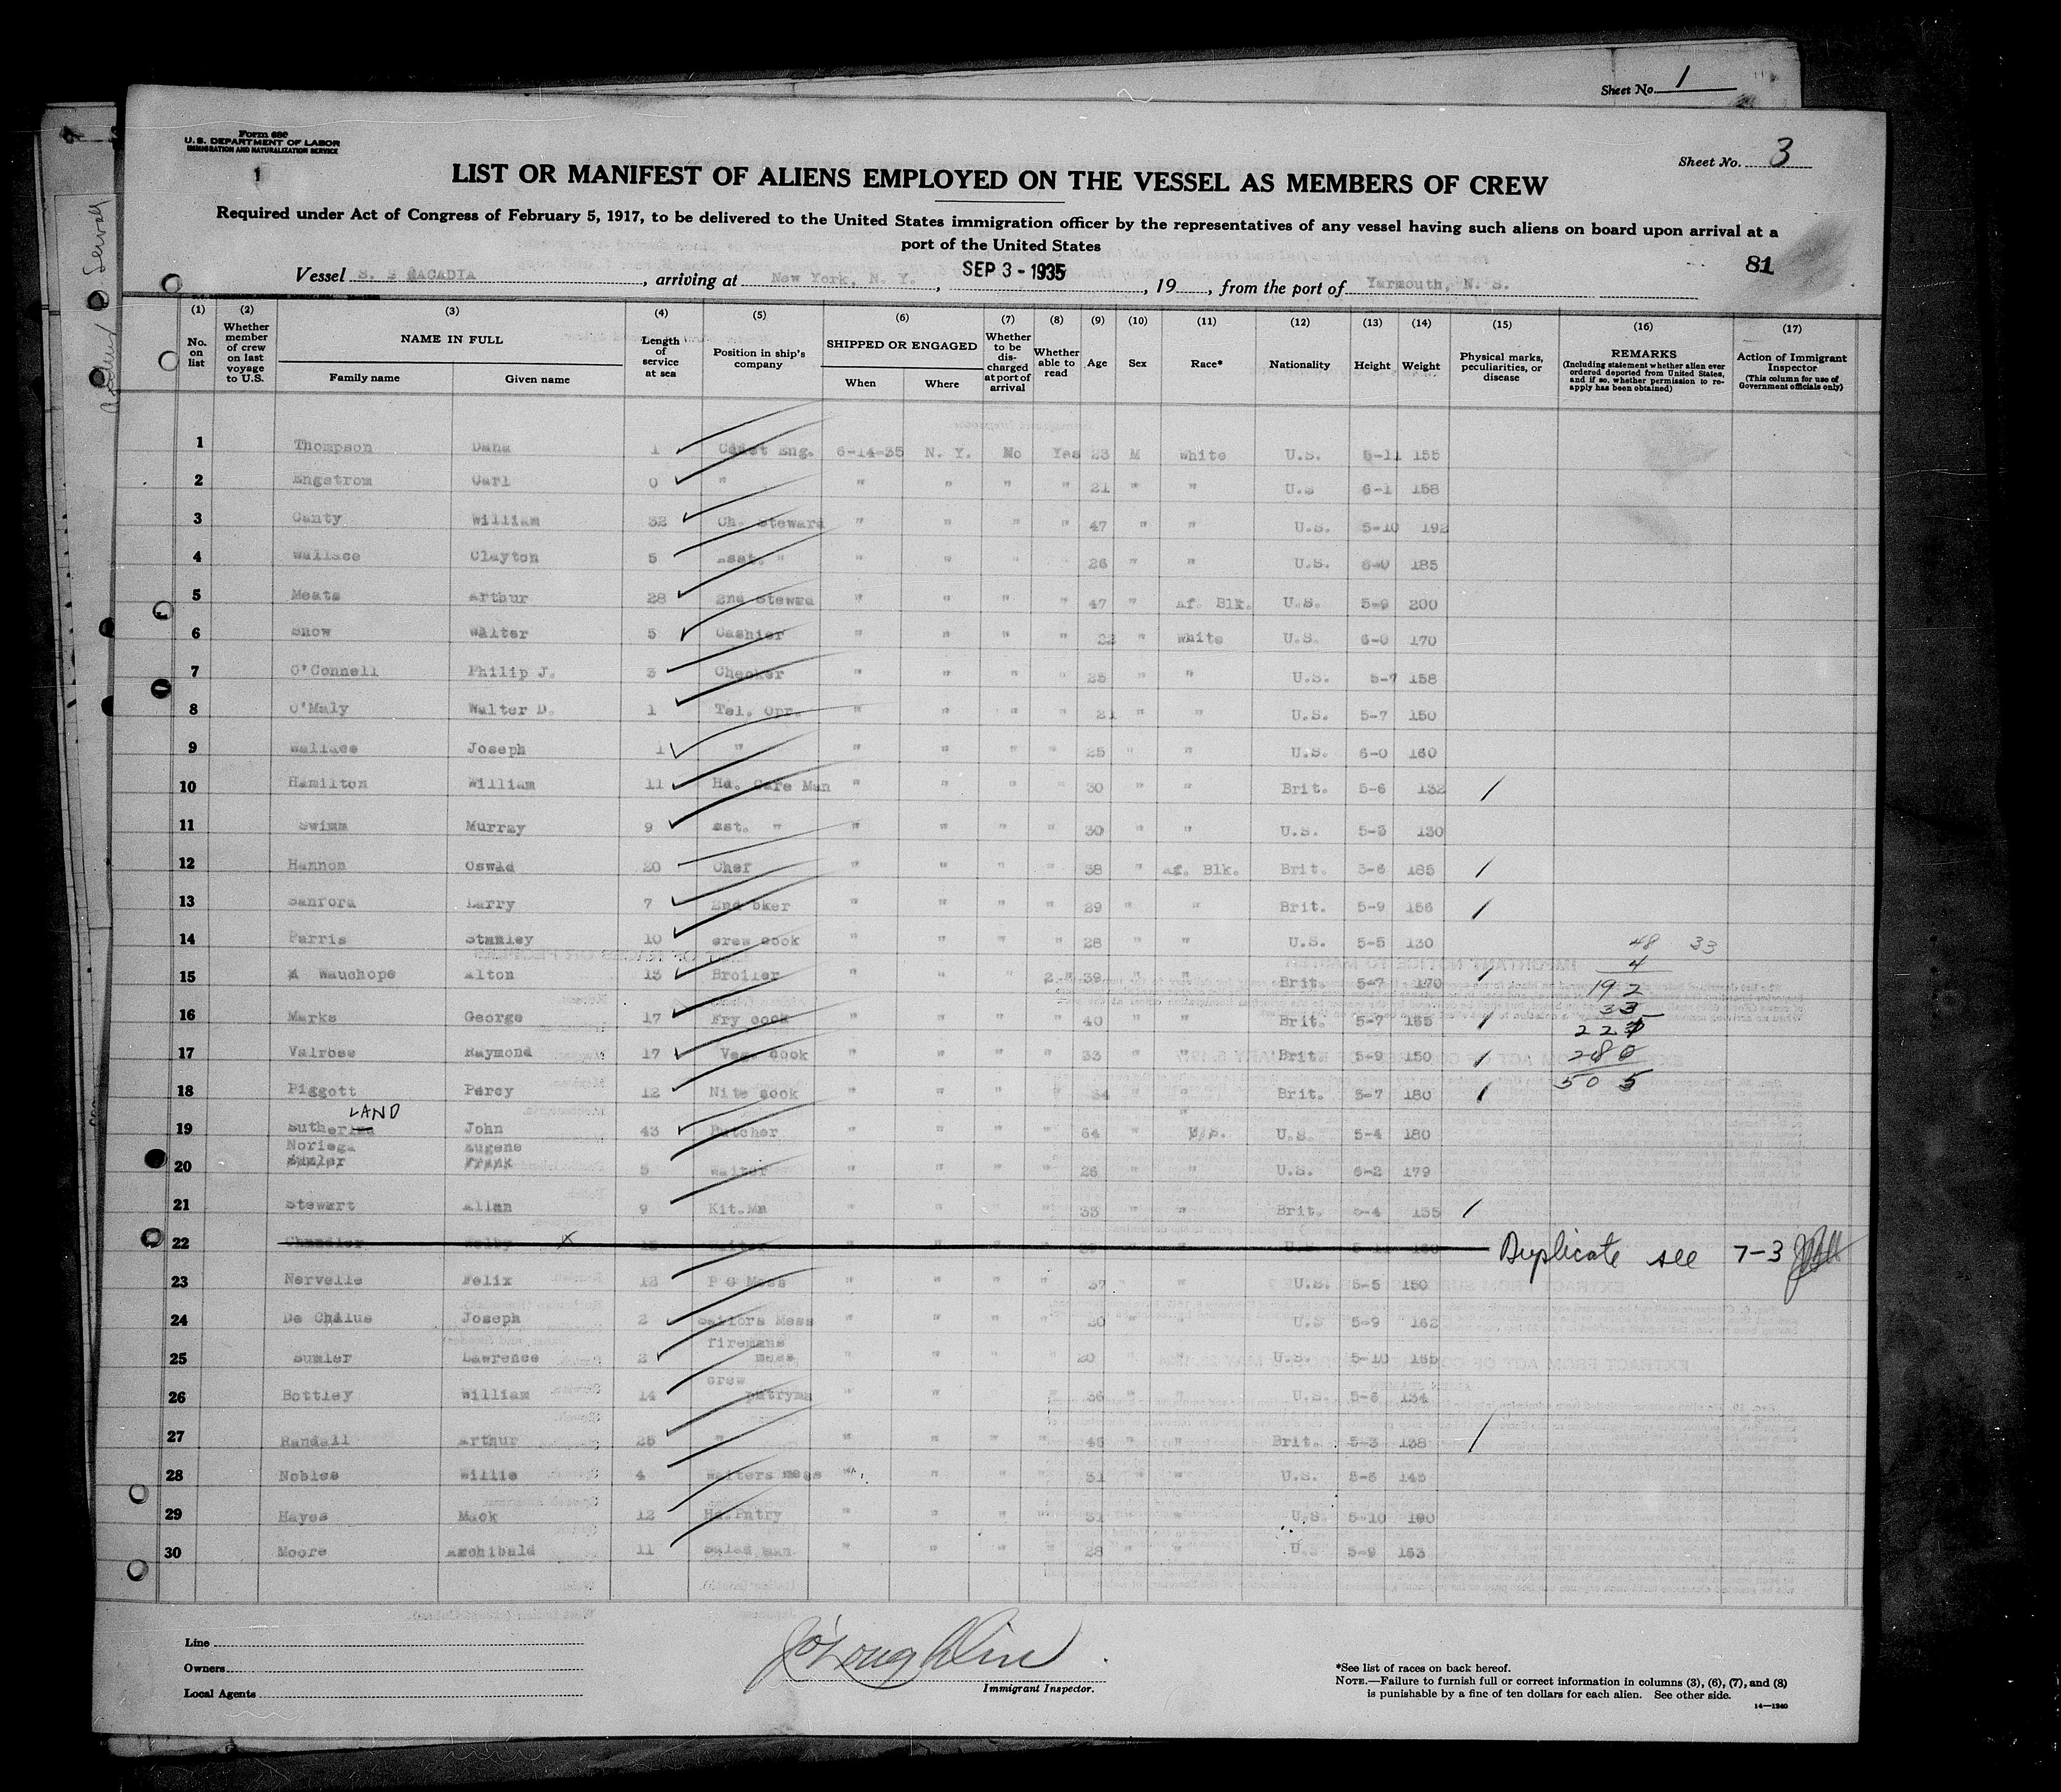 Sheet No. 1
Form 680
U.S. DEPARTMENT OF LABOR
IMMIGRATION AND NATURALIZATION SERVICE
1
Sheet No. 3
LIST OR MANIFEST OF ALIENS EMPLOYED ON THE VESSEL AS MEMBERS OF CREW
Required under Act of Congress of February 5, 1917, to be delivered to the United States immigration officer by the representatives of any vessel having such aliens on board upon arrival at a
port of the United States
81
Vessel S. S ACADIA, arriving at New York, N. Y., SEP 3 - 1935, 19, from the port of Yarmouth, N. S.
(1) (2) (3) (4) (5) (6) (7) (8) (9) (10) (11) (12) (13) (14) (15) (16) (17)
No. on list
Whether member of crew on last voyage to U.S.
NAME IN FULL
Family name Given name
Length of service at sea
Position in ship's company
SHIPPED OR ENGAGED
When Where
Whether to be discharged at port of arrival
Whether able to read
Age
Sex
Race*
Nationality
Height
Weight
Physical marks, peculiarities, or disease
REMARKS
(Including statement whether alien ever ordered deported from United States, and if so, whether permission to reapply has been obtained)
Action of Immigrant Inspector
(This column for use of Government officials only)
1 Thompson Dana 1 Cadet Eng. 6-14-35 N. Y. No Yes 23 M White U.S. 5-11 155
2 Engstrom Carl 0 " " " " " 21 " " U.S 6-1 158
3 Canty William 32 Ch. Steward " " " " 47 " " U.S. 5-10 192
4 Wallace Clayton 5 Asst. " " " " " 26 " " U.S. 6-0 185
5 Meats Arthur 28 2nd Stewrd " " " " 47 " Af. Blk. U.S. 5-9 200
6 Snow Walter 5 Cashier " " " " " White U.S. 6-0 170
7 O'Connell Philip J. 3 Checker " " " " 25 " " U.S. 5-7 158
8 O'Maly Walter D. 1 Tel. Opr. " " " " 21 " " U.S. 5-7 150
9 Wallace Joseph 1 " " " " " 25 " " U.S. 6-0 160
10 Hamilton William 11 Hd. Cafe Man " " " " 30 " " Brit. 5-6 132 /
11 Swimm Murray 9 Ast. " " " " " 30 " " U.S. 5-3 130
12 Hannon Oswld 20 Chef " " " " 38 " Af. Blk. Brit. 5-6 185 /
13 Sanford Larry 7 2nd " " " " 29 " " Brit. 5-9 156 /
14 Parris Stanley 10 crew cook " " " " 28 " " U.S. 5-5 130
48 33
4
15 Wauchope Alton 13 Broiler " " " " 39 " " Brit. 5-7 170 /
192
33
16 Marks George 17 Fry cook " " " " 40 " " Brit. 5-7 165 /
17 Valrose Raymond 17 Veg. cook " " " " 33 " " Brit. 5-9 150 /
280
18 Piggott Percy 12 Nite cook " " " " 34 " " Brit. 5-7 180 /
505
LAND
19 Suther John 43 Butcher " " " " 64 " U.S. 5-4 180
Noriega Eugene
20 Sumler Frank 5 Waiter " " " " 26 " " U.S. 6-2 179
21 Stewart Allan 9 Kit.Mn " " " " 33 " " Brit. 5-4 135 /
22 Chandler Duplicate see 7-3
23 Nervelle Felix P O Mess " " " " 37 " " U.S. 5-5 150
24 De Chalus Joseph 2 sailors Mess " " " " 20 " " U.S 5-9 162
firemans
25 Sumler Lawrence 2 mess " " " " 20 " " U.S. 5-10 165
crew
26 Bottley William 14 patrymn " " " " 36 " " U.S. 5-6 134
27 Randall Arthur 25 " " " " " 46 " " Brit. 5-3 138 /
28 Nobles Willie 4 Waiters mess " " " " 31 " " U.S. 5-6 145
29 Hayes Mack 12 Hd.Pntry " " " " 31 " " U.S. 5-10
30 Moore Archibald 11 Salad man " " " " 28 " " U.S 5-9 153
Line
Owners
Local Agents
Immigrant Inspector.
*See list of races on back hereof.
NOTE.—Failure to furnish full or correct information in columns (3), (6), (7), and (8)
is punishable by a fine of ten dollars for each alien. See other side.
14—1240